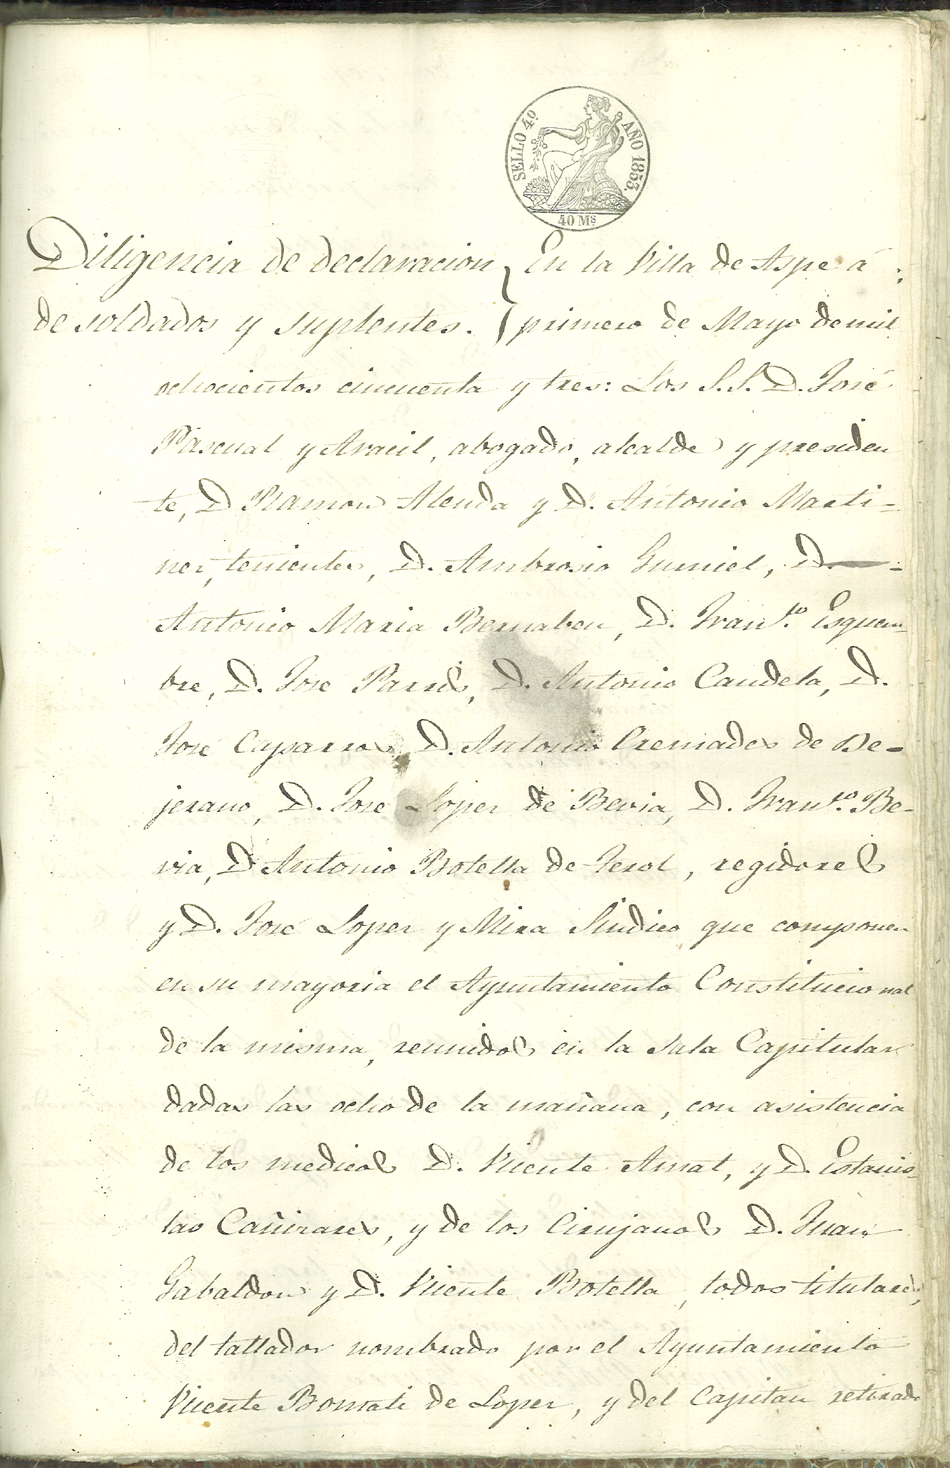 SELLO 4º AÑO 1853.
40 Ms
Diligencia de declaracion En la Villa de Aspe á
de soldados y suplentes. primero de Mayo de mil
ochocientos cincuenta y tres: Los S.S. D. José
Pascual y Aracil, abogado, alcalde y presiden
te, D Ramon Alenda y D. Antonio Marti-
nez, tenientes, D. Ambrosio Gumiel, D.
Antonio Maria Bernabeu, D. Franco. Esquem-
bre, D. Jose Parres, D. Antonio Candela, D.
José Caparros, D. Antonio Cremades de Be-
jerano, D. Jose Lopez de Bevia, D. Franco. Be-
via, D Antonio Botella de Terol, regidores
y D. José Lopez y Mira Sindico que componen
en su mayoria el Ayuntamiento Constitucional
de la misma, reunidos en la Sala Capitular
dadas las ocho de la mañana, con asistencia
de los medicos D. Vicente Amat, y D. Estanis-
lao Cañizares, y de los Cirujanos D. Juan
Gabaldon y D. Vicente Botella, todos titulares,
del tallador nombrado por el Ayuntamiento
Vicente Bomati de Lopez, y del Capitan retirado